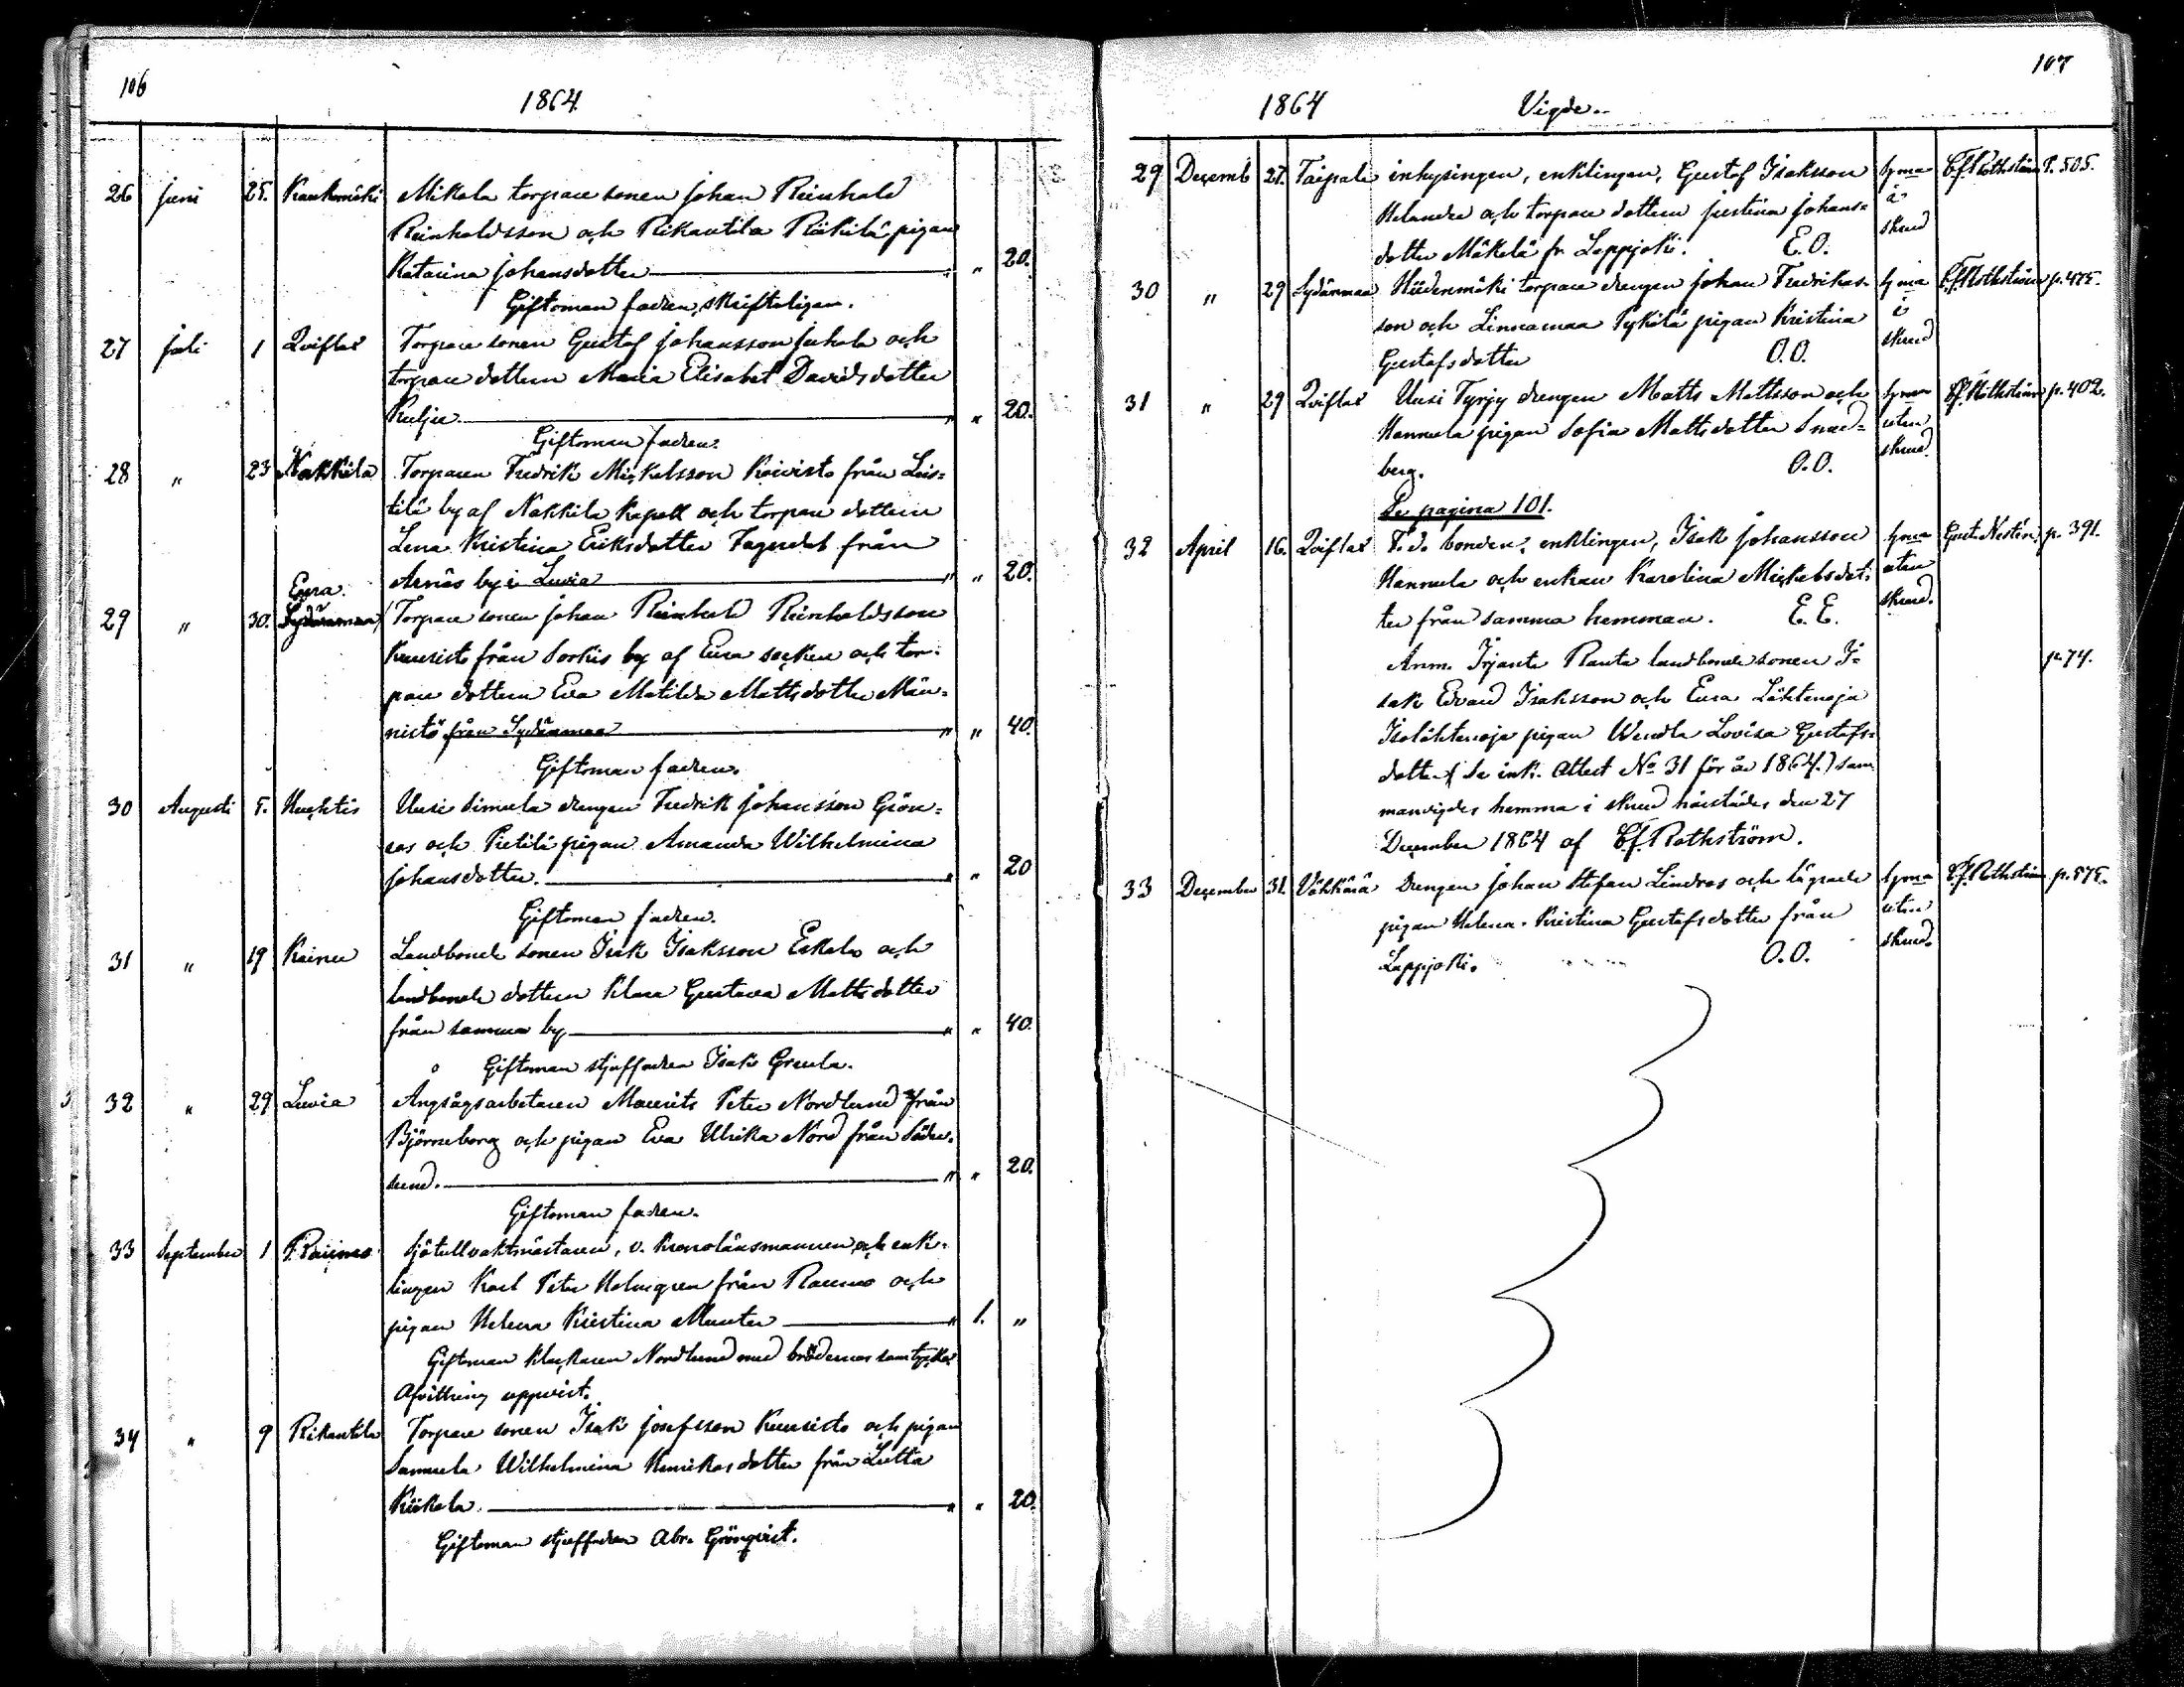 106
1864.
26 juni 25. Kaukomäki Mikola torpare sonen Johan Reinhold
Reinholdsson och Rikantila Riikilä pigan
Katarina Johansdotter " " 20.
Giftoman fadren, skrifteligen.
27 juli 1 Qviflax Torpare sonen Gustaf Johansson Juhola och
torpare dottern Maria Elisabet Davidsdotter
Kulju. " " 20.
Giftoman fadren.
28 " 23 Nakkila Torparen Fredrik Mickelsson Koivisto från Leis-
tilä by af Nakkila kapell och torpare dottern
Lena Kristina Eriksdotter Fagerdal från
Arnäs by i Luvia " " 20.
Eura.
29 " 30. Sydänmaa Torpare sonen Johan Reinhold Reinholdsson
Kuusisto från Sorkis by af Eura socken och tor-
pare dottern Eva Matilda Mattsdotter Män-
nistö från Sydänmaa " " 40.
Giftoman fadren.
30 Augusti 5. Huhtis Uusi Simula drengen Fredrik Johansson Grön-
ros och Pietilä pigan Amanda Wilhelmina
Johansdotter. " " 20
Giftoman fadren.
31 " 19 Kainu Landbonde sonen Isak Isaksson Eskola och
landbonde dottern Klara Gustava Mattsdotter
från samma by " " 40.
Giftoman stjuffadren Isak Greula.
32 " 29 Luvia Ångsågsarbetaren Maurits Peter Nordlund från
Björneborg och pigan Eva Ulrika Nord från Söder-
sund. " " 20.
Giftoman fadren.
33 September 1 F. Raumo Sjötullvaktmästaren, v. kronolänsmannen och enk-
lingen Karl Peter Holmgren från Raumo och
pigan Helena Kristina Munter " 1. "
Giftoman klockaren Nordlund med brödernas samtycke.
Afvittring uppvist.
34 " 9 Rikantila Torpare sonen Isak Josefsson Kuusisto och pigan
Samuela Wilhelmina Henriksdotter från Lutta
Kiikola. " " 20.
Giftoman stjuffadren Abr. Grönqvist.
107
1864 Vigde.
29 Decemb 27. Taipale inhysingen, enklingen, Gustaf Isaksson hma C.f. Rothström p. 505.
Helander och torpare dottern Justina Johans- i
dotter Mäkelä fr. Lappjoki. E.O. skrud
30 " 29 Sydänmaa Hiidenmäki torpare drengen Johan Fredriks- hma C.f. Rothström p. 475.
son och Linnamaa Tykilä pigan Kristina i
Gustafsdotter O.O. skrud
31 " 29 Qviflax Uusi Tyrjy drengen Matts Mattsson och hma C.f. Rothström p. 402.
Hannula pigan Sofia Mattsdotter Snad- utan
berg. O.O. skrud.
Se pagina 101.
32 April 16. Qviflax F. d. bonden, enklingen, Isak Johansson hma Gust. Nestén. p. 391.
Hannula och enkan Karolina Mickelsdot- utan
ter från samma hemman. E.E. skrud.
Anm. Irjante Ranta landbonde sonen I- p. 74.
sak Edvard Isaksson och Eura Lähtenoja
Isolähtenoja pigan Wendla Lovisa Gustafs-
dotter (Se ink. Attest No 31 för år 1864.) sam-
manvigdes hemma i skrud härstädes den 27
December 1864 af C.f. Rothström.
33 December 31. Vähkärä Drengen Johan Stefan Lindros och lägrade hma C.f. Rothström p. 575.
pigan Helena Kristina Gustafsdotter från utan
Lappjoki. O.O. skrud.